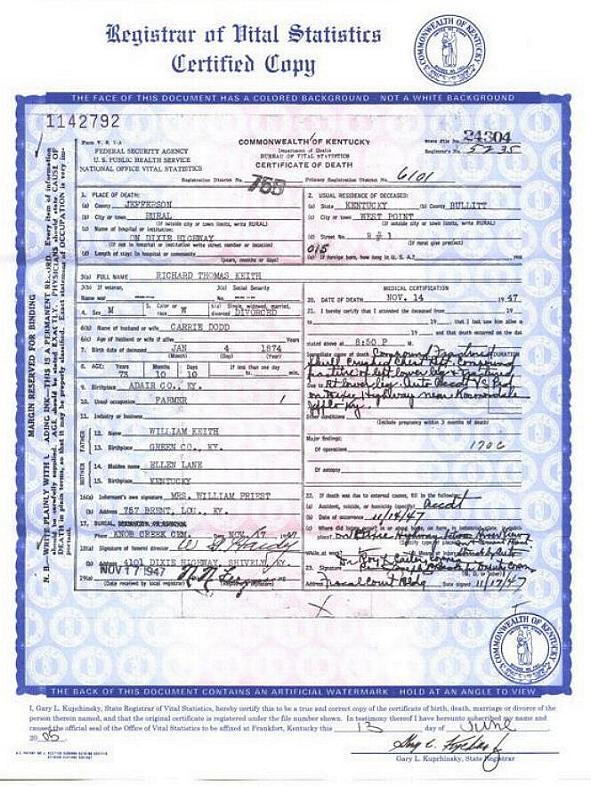 Registrar of Vital Statistics
Certified Copy
COMMONWEALTH OF KENTUCKY
THE FACE OF THIS DOCUMENT HAS A COLORED BACKGROUND - NOT A WHITE BACKGROUND
1142792
Form V. S. 1-A
FEDERAL SECURITY AGENCY
U. S. PUBLIC HEALTH SERVICE
NATIONAL OFFICE VITAL STATISTICS
COMMONWEALTH OF KENTUCKY
Department of Health
BUREAU OF VITAL STATISTICS
CERTIFICATE OF DEATH
State File No. 24304
Registrar's No. 5235
Registration District No. 755 Primary Registration District No. 6101
1. PLACE OF DEATH:
(a) County JEFFERSON
(b) City or town RURAL
(If outside city or town limits, write RURAL)
(c) Name of hospital or institution:
ON DIXIE HIGHWAY
(If not in hospital or institution write street number or location)
(d) Length of stay: In hospital or community
(years, months or days)
2. USUAL RESIDENCE OF DECEASED:
(a) State KENTUCKY (b) County BULLITT
(c) City or town WEST POINT
(If outside city or town limits, write RURAL)
(d) Street No. R # 1
(If rural give precinct)
015
(e) If foreign born, how long in U. S. A.?
3(a) FULL NAME RICHARD THOMAS KEITH
3(b) If veteran,
Name war
3(c) Social Security
No.
4. Sex M
5. Color or race W
6(a) Single, widowed, married, divorced DIVORCED
6(b) Name of husband or wife CARRIE DODD
6(c) Age of husband or wife if alive Years
7. Birth date of deceased JAN 4 1874
(Month) (Day) (Year)
8. AGE: Years 73 Months 10 Days 10 If less than one day
hr. min.
9. Birthplace ADAIR CO., KY.
10. Usual occupation FARMER
11. Industry or business
FATHER
12. Name WILLIAM KEITH
13. Birthplace GREEN CO., KY.
MOTHER
14. Maiden name ELLEN LANE
15. Birthplace KENTUCKY
16(a) Informant's own signature MRS. WILLIAM PRIEST
(b) Address 757 BRENT, LOU., KY.
17. BURIAL
Place KNOB CREEK CEM. NOV. 17 1947
18(a) Signature of funeral director W G Hardy
(b) Address 4101 DIXIE HIGHWAY, SHIVELY, KY.
19(a) NOV 17 1947
(Date received by local registrar)
MEDICAL CERTIFICATION
20. DATE OF DEATH NOV. 14 1947
21. I certify that I attended the deceased from 19
, 19 , that I last saw him alive
, 19 , and that death occurred on the date
stated above at 8:50 P M.
Immediate cause of death Compound Fractured
DURATION
Skull Crushed Chest
of left lower leg & Fractured
Due to Rt lower leg. Auto Accdt VS Ped
on Dixie Highway near Kosmosdale
Jeff Co Ky.
(Include pregnancy within 3 months of death)
Major findings:
Of operations
170c
Of autopsy
22. If death was due to external causes, fill in the following:
(a) Accident, suicide, or homicide (specify) Accdt
(b) Date of occurrence 11/14/47
(c) Where did injury occur?
Struck by Auto
While at work?
23. Signature
Address Fiscal Court Bldg Date signed 11/17/47
MARGIN RESERVED FOR BINDING
THE BACK OF THIS DOCUMENT CONTAINS AN ARTIFICIAL WATERMARK - HOLD AT AN ANGLE TO VIEW
COMMONWEALTH OF KENTUCKY
I, Gary L. Kupchinsky, State Registrar of Vital Statistics, hereby certify this to be a true and correct copy of the certificate of birth, death, marriage or divorce of the
person therein named, and that the original certificate is registered under the file number shown. In testimony thereof I have hereunto subscribed my name and
caused the official seal of the Office of Vital Statistics to be affixed at Frankfort, Kentucky this 13 day of June
2005
Gary L. Kupchinsky, State Registrar